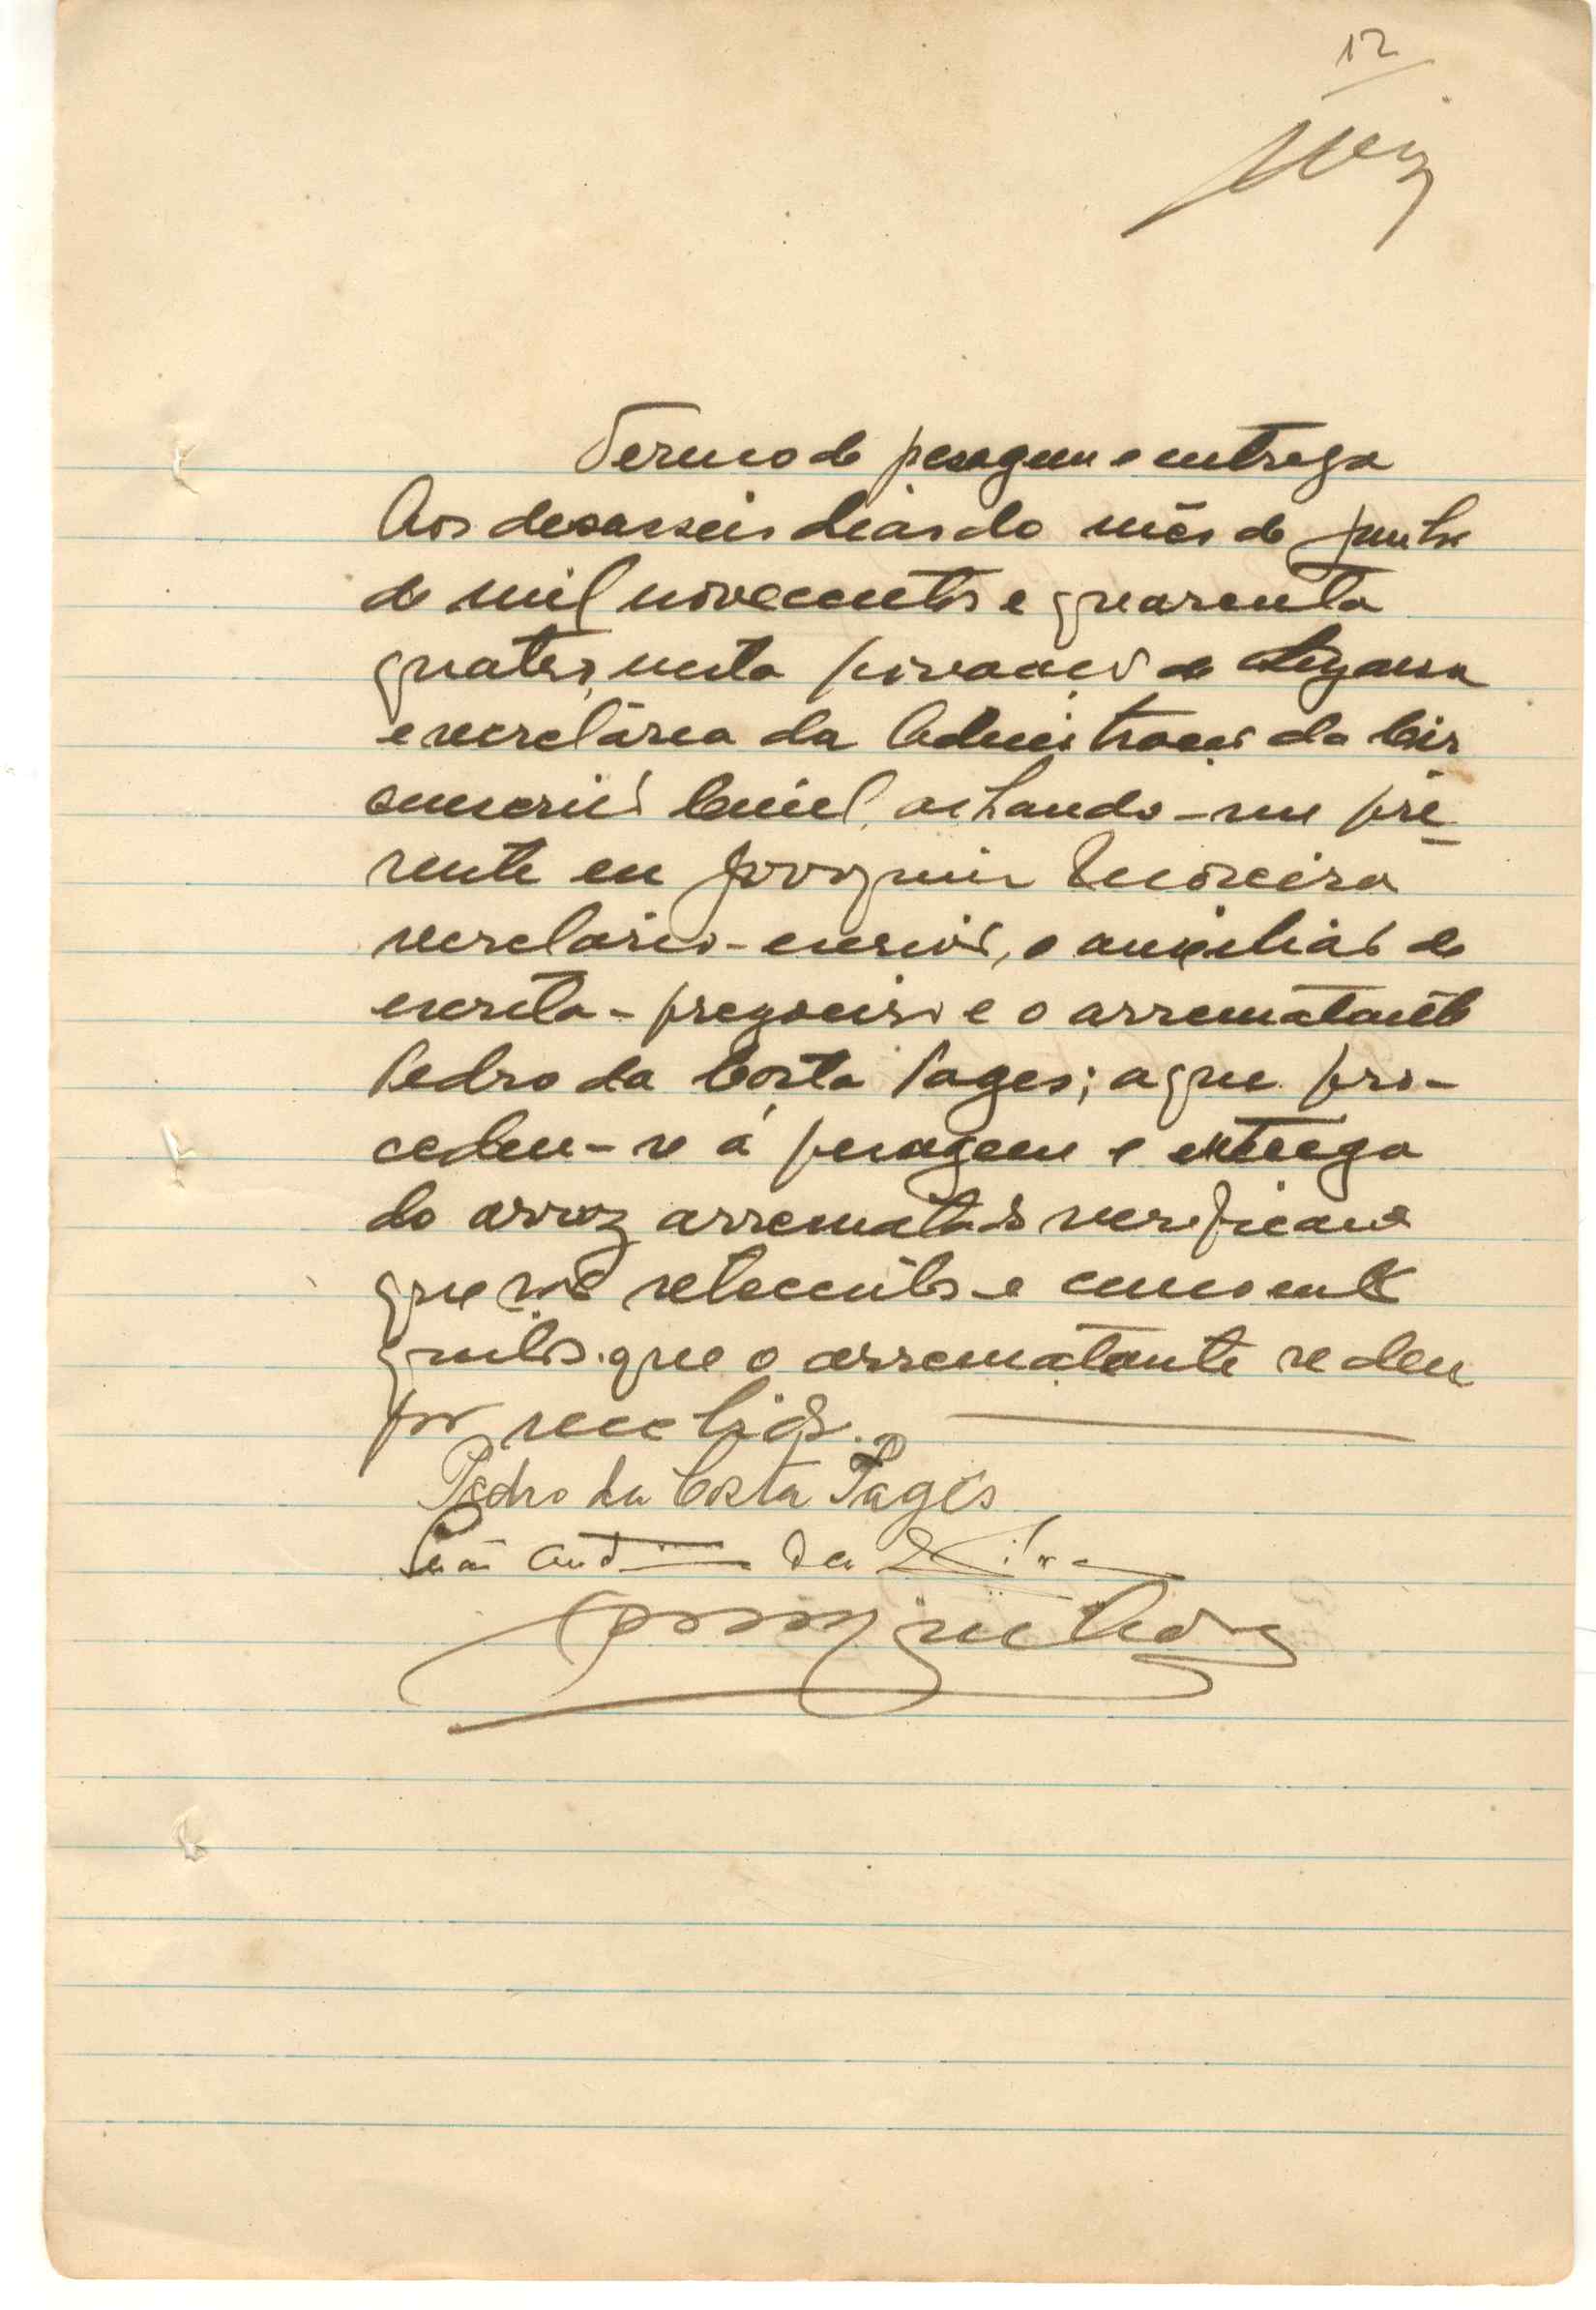 12
Termo de pesagem e entrega
Aos desasseis dias do mês de Junho
de mil novecentos e quarenta
quatro, nesta povoação de
e secretária da Admnistração da Cir
cunscrição Civil, achando-me pre
sente eu Joaquim Moreira
secretario-escrivão, o auxiliar de
escrita-pregoeiro e o arrematante
Pedro da Costa Pages; a que pro-
cedeu-se á pesagem e entrega
do arroz arrematado verificando
que são setecentos e cincoenta
quilos que o arrematante se deu
por recebido.
Pedro da Costa Pagés
da Silva